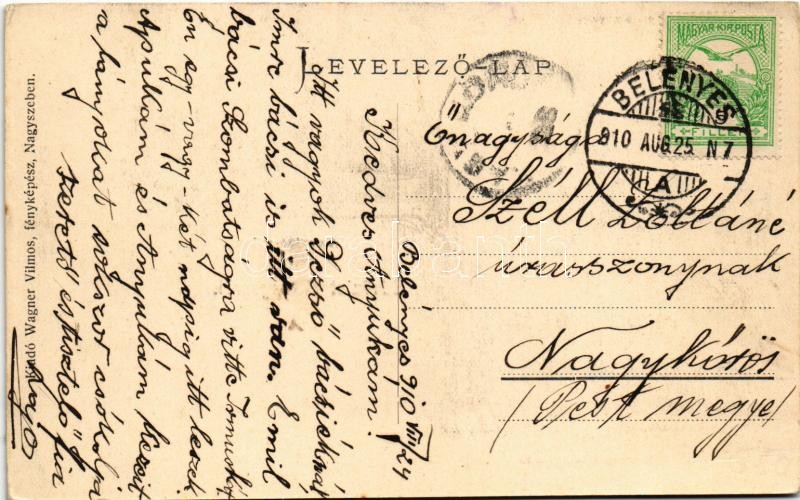 LEVELEZŐ-LAP
MAGYAR KIR. POSTA
FILLÉR
BELÉNYES
910 AUG. 25. N7
A
Őnagysága
Széll Zoltáné
úrasszonynak
Nagykőrös
(Pest megye)
Belényes 910 VIII/24
Kedves Anyukám!
Itt vagyok Dezső bácsiéknál
Imre bácsi is itt van. Emil
bácsi Szombatságra vitte Irmuskát
Én egy-vagy-két napig itt leszek
Apukám és Anyukám kezeit
a lányokat sokszor csókolja
szerető és tisztelő fia
Lajo
Kiadó Wagner Vilmos, fényképész, Nagyszeben.
darabanth